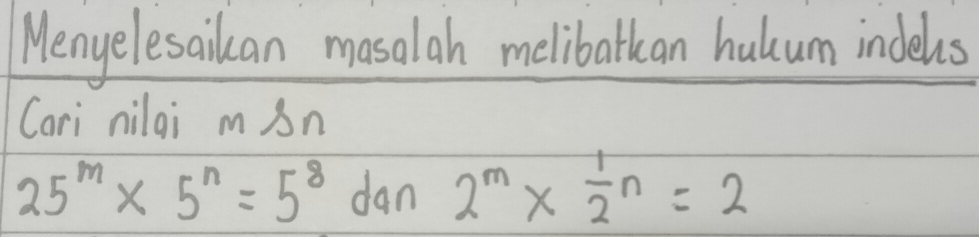 Menyelesaikan masalah melibatkan hukum indeks
Cari nilai m & n
25^m × 5^n = 5^8 dan 2^m × 1/2^n = 2